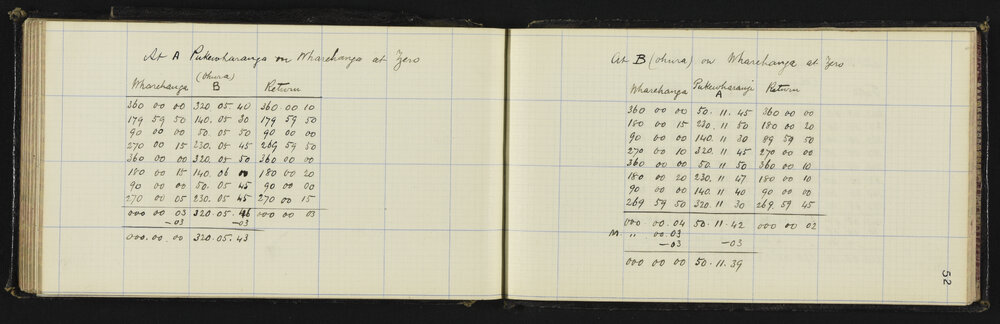 At A Pukewharanga on Wharehanga at Zero
(Ohura)
Wharehanga B Return
360 00 00 320 05 40 360.00 10
179 59 50 140.05 30 179 59 50
90 00 00 50.05 50 90 00 00
270 00 15 230.05 45 269 59 50
360 00 00 320.05 50 360 00 00
180 00 15 140.06 180 00 20
90 00 00 50.05 45 90 00 00
270 00 05 230.05 45 270 00 15
000 00 03 320.05.46 000 00 03
-03 -03
000.00.00 320.05.43
At B (Ohura) on Wharehanga at Zero
Wharehanga Pukewharangi Return
A
360 00 00 50.11.45 360 00 00
180 00 15 230.11 50 180 00 20
90 00 00 140.11 30 89 59 50
270 00 10 320.11 45 270 00 00
360 00 00 50.11 50 360 00 10
180 00 20 230.11 47 180 00 10
90 00 00 140.11 40 90 00 00
269 59 50 320.11 30 269.59 45
000 00.04 50.11.42 000 00 02
M " 00.03
-03 -03
000 00 00 50.11.39
52